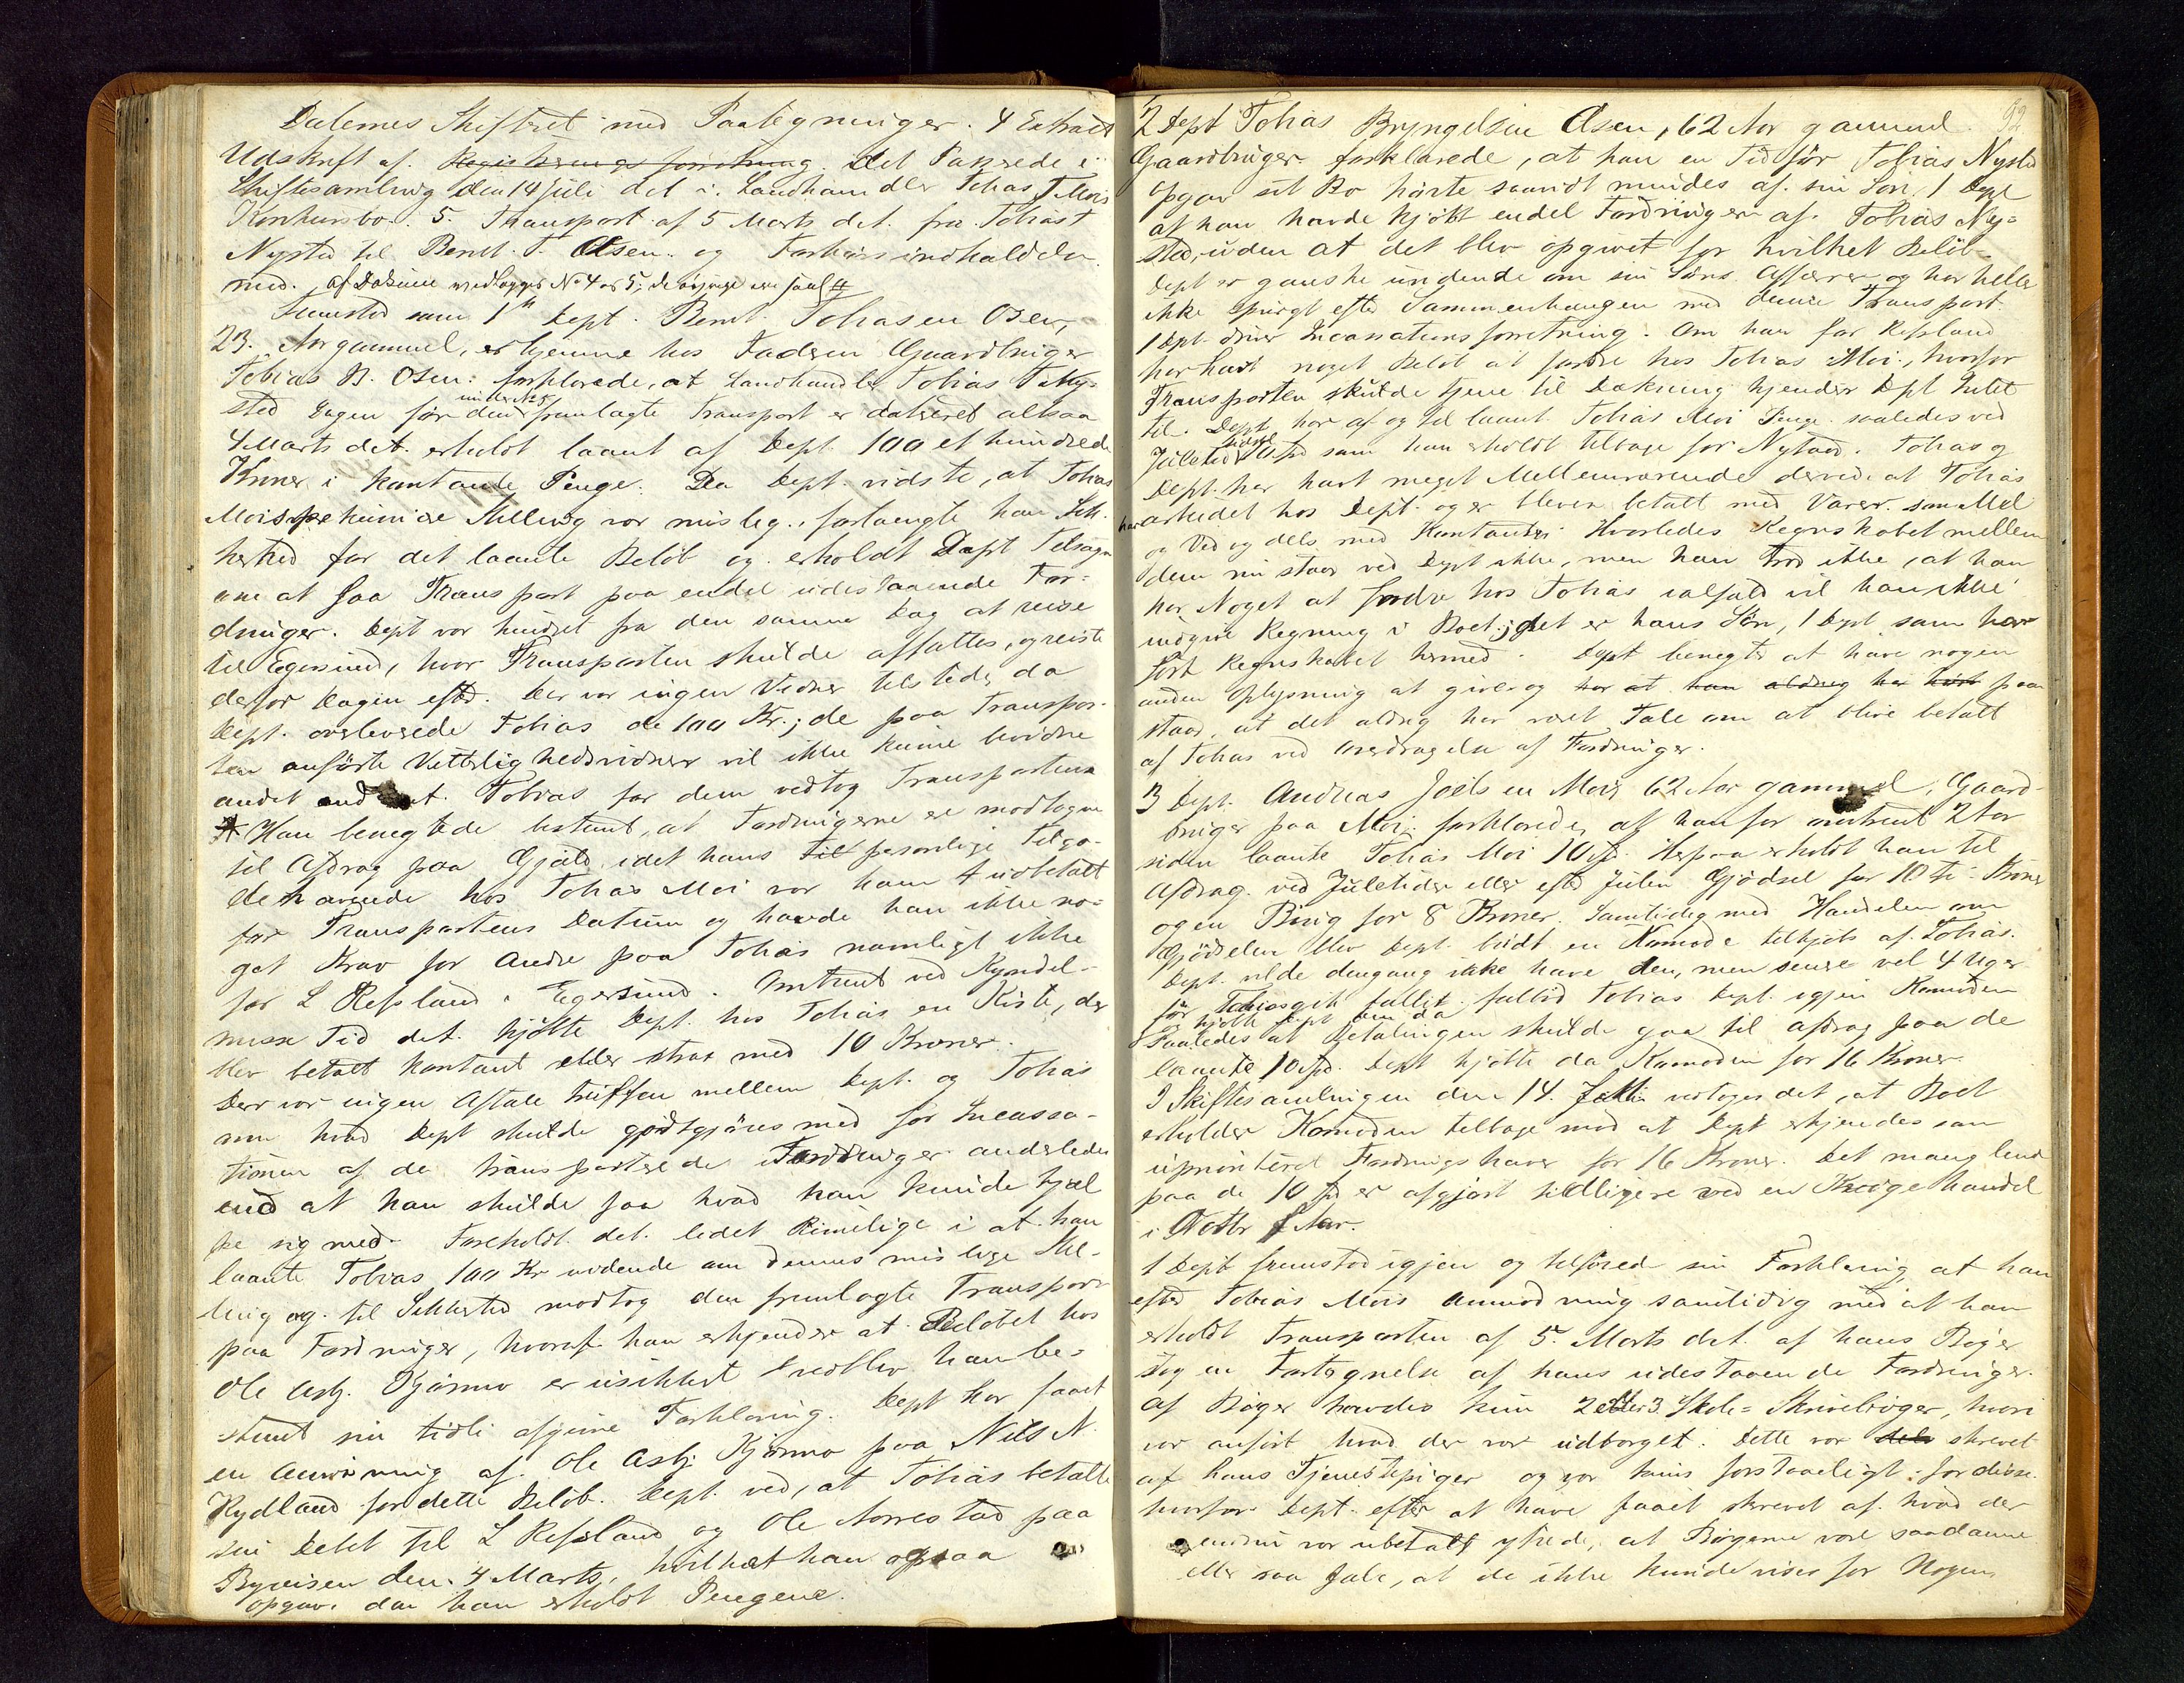 Dalernes Skifteret med Paategninger. 4 Extract
Udskrift af. Registrerings forretning det Passerede i
Skiftesamling den 14 Juli d.A. i. Landhandler Tobias T. Mois
Konkursbo. 5. Transport af 5 Marts d.A. fra Tobias T
Nysted til Bernt. T. Osen. og Forhørs indholdde
med. af Dokum vedlægges No 4 og 5; de øvrige
Fremstod som 1ste Dept. Bernt Tobiasen Osen,
23. Aar gammel, er hjemme hos Faderen Gaardbruger
Tobias B. Osen: forklarede, at Landhandler Tobias T. Ny-
sted Dagen før den under No 5 fremlagte Transport er dateret altsaa
4 Marts d.A. erholdt laant af Dept. 100 et hundrede
Kroner i kontante Penge. Da Dept. vidste, at Tobias
Mois pekuniære Stilling var mislig, forlangte han Sik-
kerhed for det laante Beløb og erholdt Dept Tilsagn
om at faa Transport paa endel udestaaende For-
dringer. Dept var hindret fra den samme Dag at reise
til Egersund, hvor Transporten skulde affattes, og reiste
derfor Dagen efter. Der var ingen Vidner tilstede, da
Dept. overleverede Tobias de 100 Kr.; de paa Transpor-
ten anførte Vitterlighedsvidner vil ikke kunne bevidne
andet end at Tobias for dem vedtog Transporten
Han benegtede bestemt, at Fordringerne er modtagne
til Afdrag paa Gjæld, idet hans til personlige Tilgo-
dehavende hos Tobias Moi var ham udbetalt
før Transportens Datum og havde han ikke no-
get Krav for Andre paa Tobias navnligt ikke
for L Resland i Egersund. Omtrent ved Kyndel-
messe Tid d.A. kjøbte Dept. hos Tobias en Kiste, der
blev betalt kontant eller strax med 10 Kroner.
Der var ingen Aftale truffen mellem Dept. og Tobias
om hvad Dept skulde godtgjøres med for Incassa-
tionen af de transporterede Fordringer anderledes
end at han skulde faa hvad han kunde hjæl
pe sig med. Foreholdt det lidet Rimelige i at han
laante Tobias 100 Kr vidende om dennes mislige Stil-
ling og til Sikkerhed modtog den fremlagte Transport
paa Fordringer, hvoraf han erkjender at Beløbet hos
Ole Asbj. Kjørmo er usikkert vedblev han be-
stemt sin tidli afgivne Forklaring. Dept har faaet
en Anvisning af Ole Asbj Kjørmo paa Nils N.
Rydland for dette Beløb. Dept. ved, at Tobias betalte
sin Debet til L Resland og Ole Aarrestad paa
Byreisen den 4 Marts, hvilket han ogsaa
opgav. da han erholdt Pengene.
92
2 Dept Tobias Bryngelsen Osen, 62 Aar gammel
Gaardbruger forklarede, at han en Tid før Tobias Nysted
opgav sit Bo hørte saavidt mindes af sin Søn, 1 Dept
at han havde kjøbt endel Fordringer af Tobias Ny-
sted, uden at det blev opgivet for hvilket Beløb.
Dept er ganske uvidende om sin Søns Affærer og har heller
ikke spurgt efter Sammenhængen med denne Transport.
1 Dept. driver Incassationsforretning. Om han for Resland
har havt noget Beløb at fordre hos Tobias Moi, hvorfor
Transporten skulde tjene til Dækning kjender Dept Intet
til. Dept har af og til laant Tobias Moi Penge saaledes ved
Juletid som han erholdt tilbage før Nytaar. Tobias og
Dept. har havt meget Mellemværende derved, at Tobias
har arbeidet hos Dept. og er bleven betalt med Varer som Mel
og Ved og dels med Kontanter. Hvorledes Regnskabet mellem
dem nu staar ved Dept ikke, men han tror ikke, at han
har Noget at fordre hos Tobias ialfald vil han ikke
indgive Regning i Boet; det er hans Søn, 1 Dept som har
ført Regnskabet hermed. Dept benegter at have nogen
anden Oplysning at give og har at han aldrig har hørt paa
staar, at det aldrig har været Tale om at blive betalt
af Tobias ved Overdragelse af Fordringer.
3 Dept. Andreas Joelsen Moi, 62 Aar gammel, Gaard-
bruger paa Moi: forklarede, at han for omtrent 2 Aar
siden laante Tobias Moi 10 Spd. Herpaa erholdt han til
Afdrag ved Juletider eller efter Julen Gjødsel for 10 ti Kroner
og en Bing for 8 Kroner. Samtidig med Handelen om
Gjødselen blev Dept. budt en Komode tilkjøbs af Tobias.
Dept. vilde dengang ikke have den, men senere vel 4 Uger
før Tobias gik fallit falbød Tobias Dept. igjen Komoden
kjøbte Dept den da
saaledes at Betalingen skulde gaa til Afdrag paa de
laante 10 Spd. Dept kjøbte da Komoden for 16 Kroner.
I Skiftesamlingen den 14. Juli vedtoges det, at Boet
erholder Komoden tilbage mod at Dept erkjendes som
uprioriteret Fordringshaver for 16 Kroner. Det manglende
paa de 10 Spd er afgjort tidligere ved en Kvægehandel
i Octbr f. Aar.
1 Dept fremstod igjen og tilføiede sin Forklaring, at han
efter Tobias Mois Anmodning samtidig med at han
erholdt Transporten af 5. Marts d.A. af hans Bøger
tog en Fortegnelse af hans udestaaende Fordringer.
Af Bøger havdes kun 2 eller 3 Skole-Skrivebøger, hvori
var anført hvad der var udborget. Dette var dels skrevet
af hans Tjenestepiger og var kuns forstaaeligt for disse
hvorfor Dept. efter at have faaet skrevet af hvad der
endnu var ubetalt ytrede, at Bøgerne vare saadanne
eller saa fale, at de ikke kunde vises for Nogen.